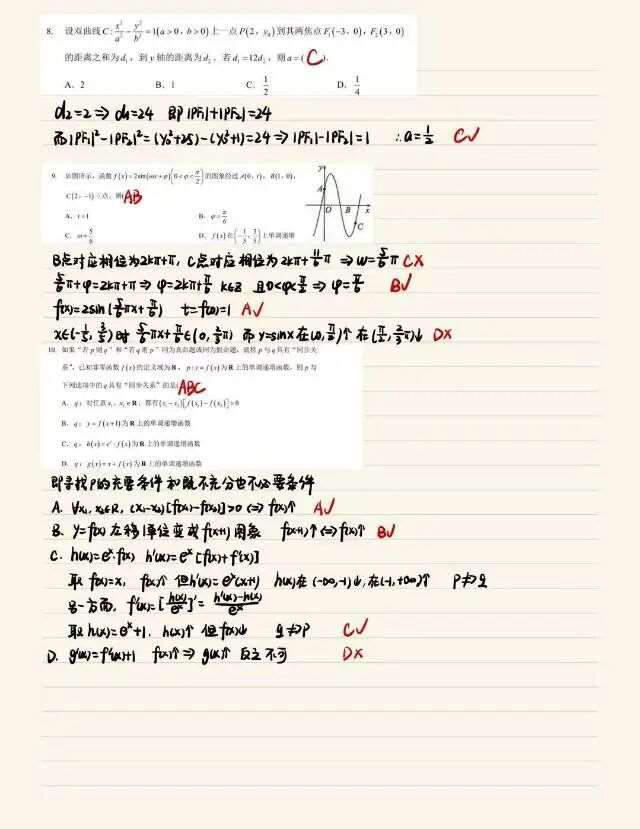 8. 设双曲线 C: x²/a² − y²/b² = 1(a>0, b>0)上一点 P(2, y₀) 到其两焦点 F₁(−3, 0), F₂(3, 0)
的距离之和为 d₁, 到 y 轴的距离为 d₂, 若 d₁=12d₂, 则 a=( C ).
A. 2 B. 1 C. 1/2 D. 1/4
d₂=2 ⇒ d₁=24 即 |PF₁|+|PF₂|=24
而|PF₁|²−|PF₂|²=(y₀²+25)−(y₀²+1)=24 ⇒ |PF₁|−|PF₂|=1 ∴a=1/2 C√
9. 如图所示, 函数 f(x)=2sin(ωx+φ)(0<φ<π/2) 的图象经过 A(0, t), B(1, 0),
C(2, −1) 三点, 则 AB
A. t=1 B. φ=π/6
C. ω=5/6 D. f(x) 在 (−1/5, 3/5) 上单调递增
y A O B C x
B点对应相位为2kπ+π, C点对应相位为2kπ+11/6π ⇒ ω=5/6π C×
5/6π+φ=2kπ+π ⇒ φ=2kπ+π/6 k∈Z 且0<φ<π/2 ⇒ φ=π/6 B√
f(x)=2sin(5/6πx+π/6) t=f(0)=1 A√
x∈(−1/5, 3/5)时 5/6πx+π/6∈(0, 2/3π) 而 y=sinx在(0, π/2)↑ 在(π/2, 2/3π)↓ D×
10. 如果“若 p 则 q”和“若 q 则 p”同为真命题或同为假命题, 就称 p 与 q 具有“同步关
系”, 已知非零函数 f(x) 的定义域为 R, p: y=f(x) 为 R 上的单调递增函数, 则 p 与
下列选项中的 q 具有“同步关系”的是( ABC
A. q: 对任意 x₁, x₂∈R, 都有(x₁−x₂)[f(x₁)−f(x₂)]>0
B. q: y=f(x+1)为 R 上的单调递增函数
C. q: h(x)=eˣ·f(x)为 R 上的单调递增函数
D. q: g(x)=x+f(x)为 R 上的单调递增函数
即寻找P的充要条件和既不充分也不必要条件
A. ∀x₁, x₂∈R, (x₁−x₂)[f(x₁)−f(x₂)]>0 ⇔ f(x)↑ A√
B. y=f(x) 左移1单位变成f(x+1)图象 f(x+1)↑⇔f(x)↑ B√
C. h(x)=eˣ·f(x) h'(x)=eˣ[f(x)+f'(x)]
取 f(x)=x, f(x)↑ 但h'(x)=eˣ(x+1) h(x)在(−∞,−1)↓,在(−1,+∞)↑ P⇏q
另一方面, f'(x)=[h(x)/eˣ]'=h'(x)−h(x)/eˣ
取 h(x)=eˣ+1. h(x)↑ 但f(x)↓ q⇏p C√
D. g'(x)=f'(x)+1 f(x)↑⇒g(x)↑ 反之不可 D×